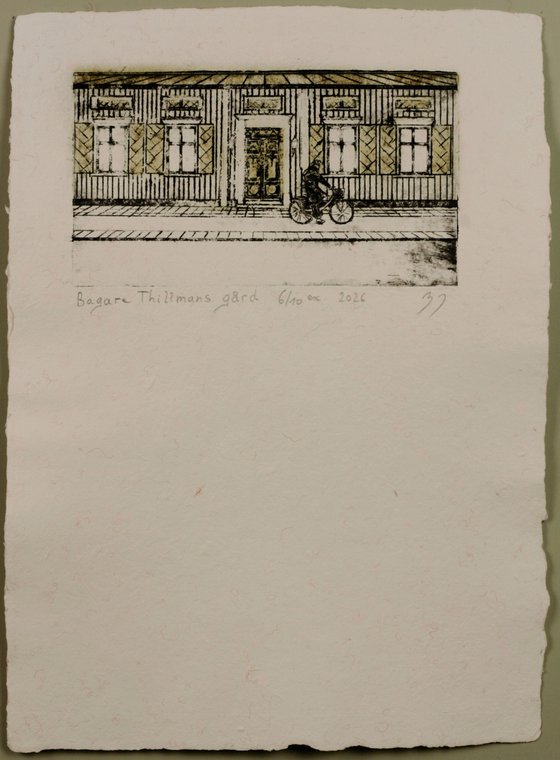 Bagare Thillmans gård 6/10 ex 2026